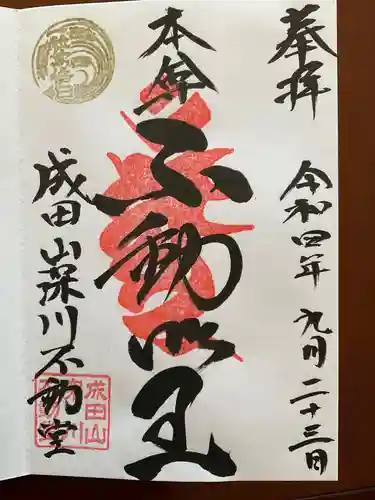 奉拝
令和四年 九月二十三日
本尊
不動明王
成田山深川不動堂
成田山